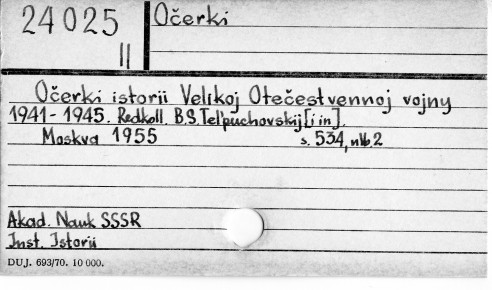 24025 Očerki
II
Očerki istorii Velikoj Otečestvennoj vojny
1941-1945. Redkoll. B.S. Tel'puchovskij [i in].
Moskva 1955 s. 534, nlb. 2
Akad. Nauk SSSR
Inst. Istorii
DUJ. 693/70. 10 000.